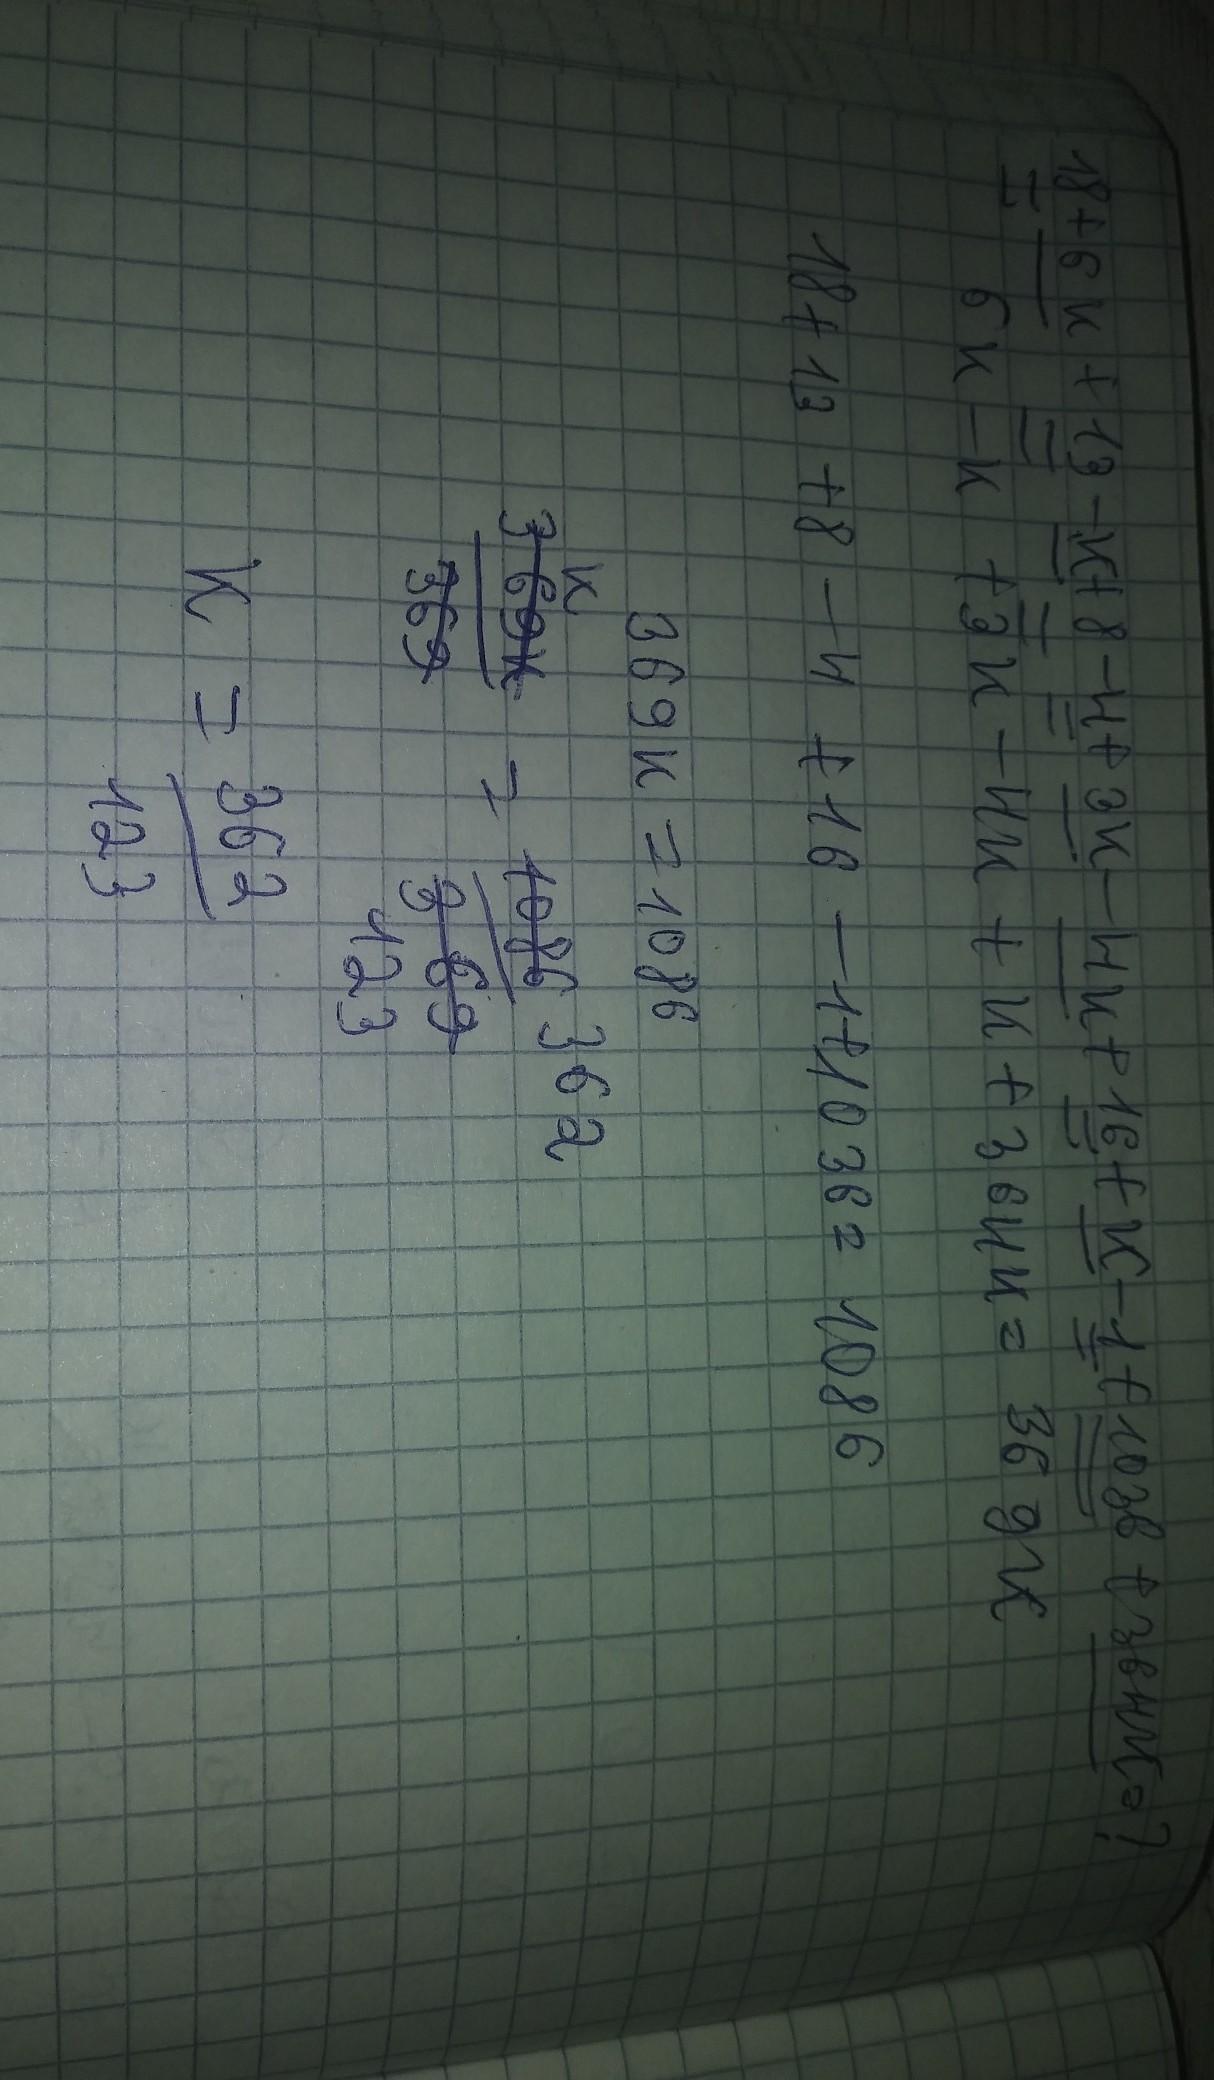 18+6к+13-к+8-4+3к-4к+16+к-1+1036+364к=?
6к-к+3к-4к+к+364к= 369к
18+13+8-4+16-1+1036= 1086
369к=1086
к 362
369к = 1086
369 369
123
к = 362
123